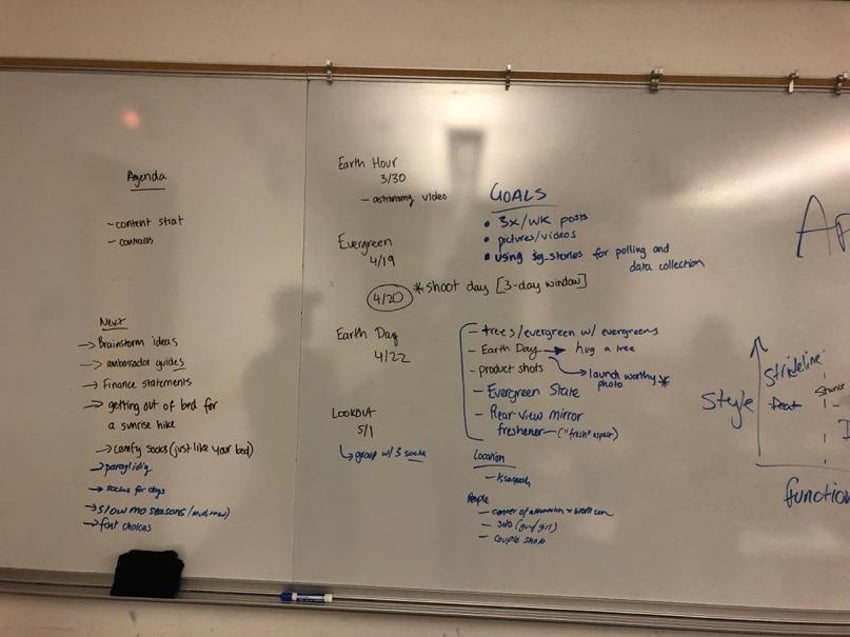 Agenda
- content strat
- contracts
Next
→ Brainstorm ideas
→ ambassador guides
→ Finance statements
→ getting out of bed for
a sunrise hike
→ comfy socks (just like your bed)
→ paragliding
→ socks for dogs
→ slow mo seasons
→ foot choices
Earth Hour
3/30
- astronomy video
Evergreen
4/19
4/20 * shoot day [3-day window]
Earth Day
4/22
Lookout
5/1
↳ group w/ 3 socks
GOALS
• 3x/wk posts
• pictures/videos
• using ig-stories for polling and
data collection
- trees/evergreen w/ evergreens
- Earth Day → hug a tree
→ launch worthy *
photo
- product shots
- Evergreen State
- Rear view mirror
freshener - ("fresh" aspect)
Location
- Issaquah
People
- center of attention
- solo (guy/girl)
- couple shots
Ap
Style
Strideline:
feat
function